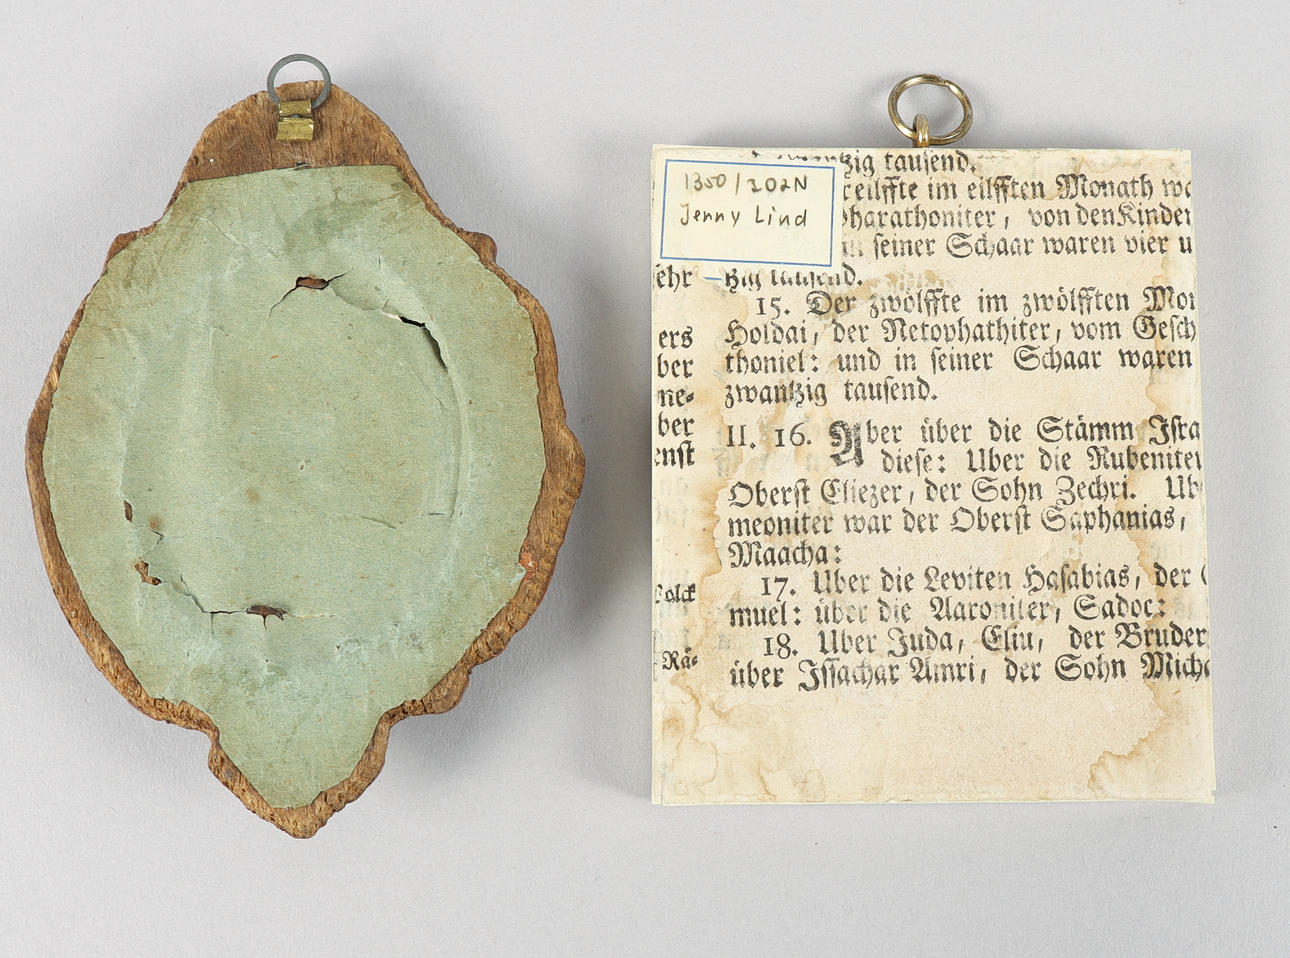 1350/202N
Jenny Lind
zig tausend.
eilffte im eilfften Monath
harathoniter, von den Kinder
seiner Schaar waren vier u
ehr
tzig tausend.
15. Der zwölffte im zwölfften Mon
ers
Holdai, der Netophathiter, vom Gesch
ber
thoniel: und in seiner Schaar waren
ne-
zwantzig tausend.
ber
II. 16. Aber über die Stämm Isra
enst
diese: Uber die Rubeniter
Oberst Eliezer, der Sohn Zechri. Ub
meoniter war der Oberst Saphanias,
Maacha:
17. Uber die Leviten Hasabias, der
olck
muel: über die Aaroniter, Sadoc:
18. Uber Juda, Eliu, der Bruder
Rä-
über Issachar Amri, der Sohn Micha